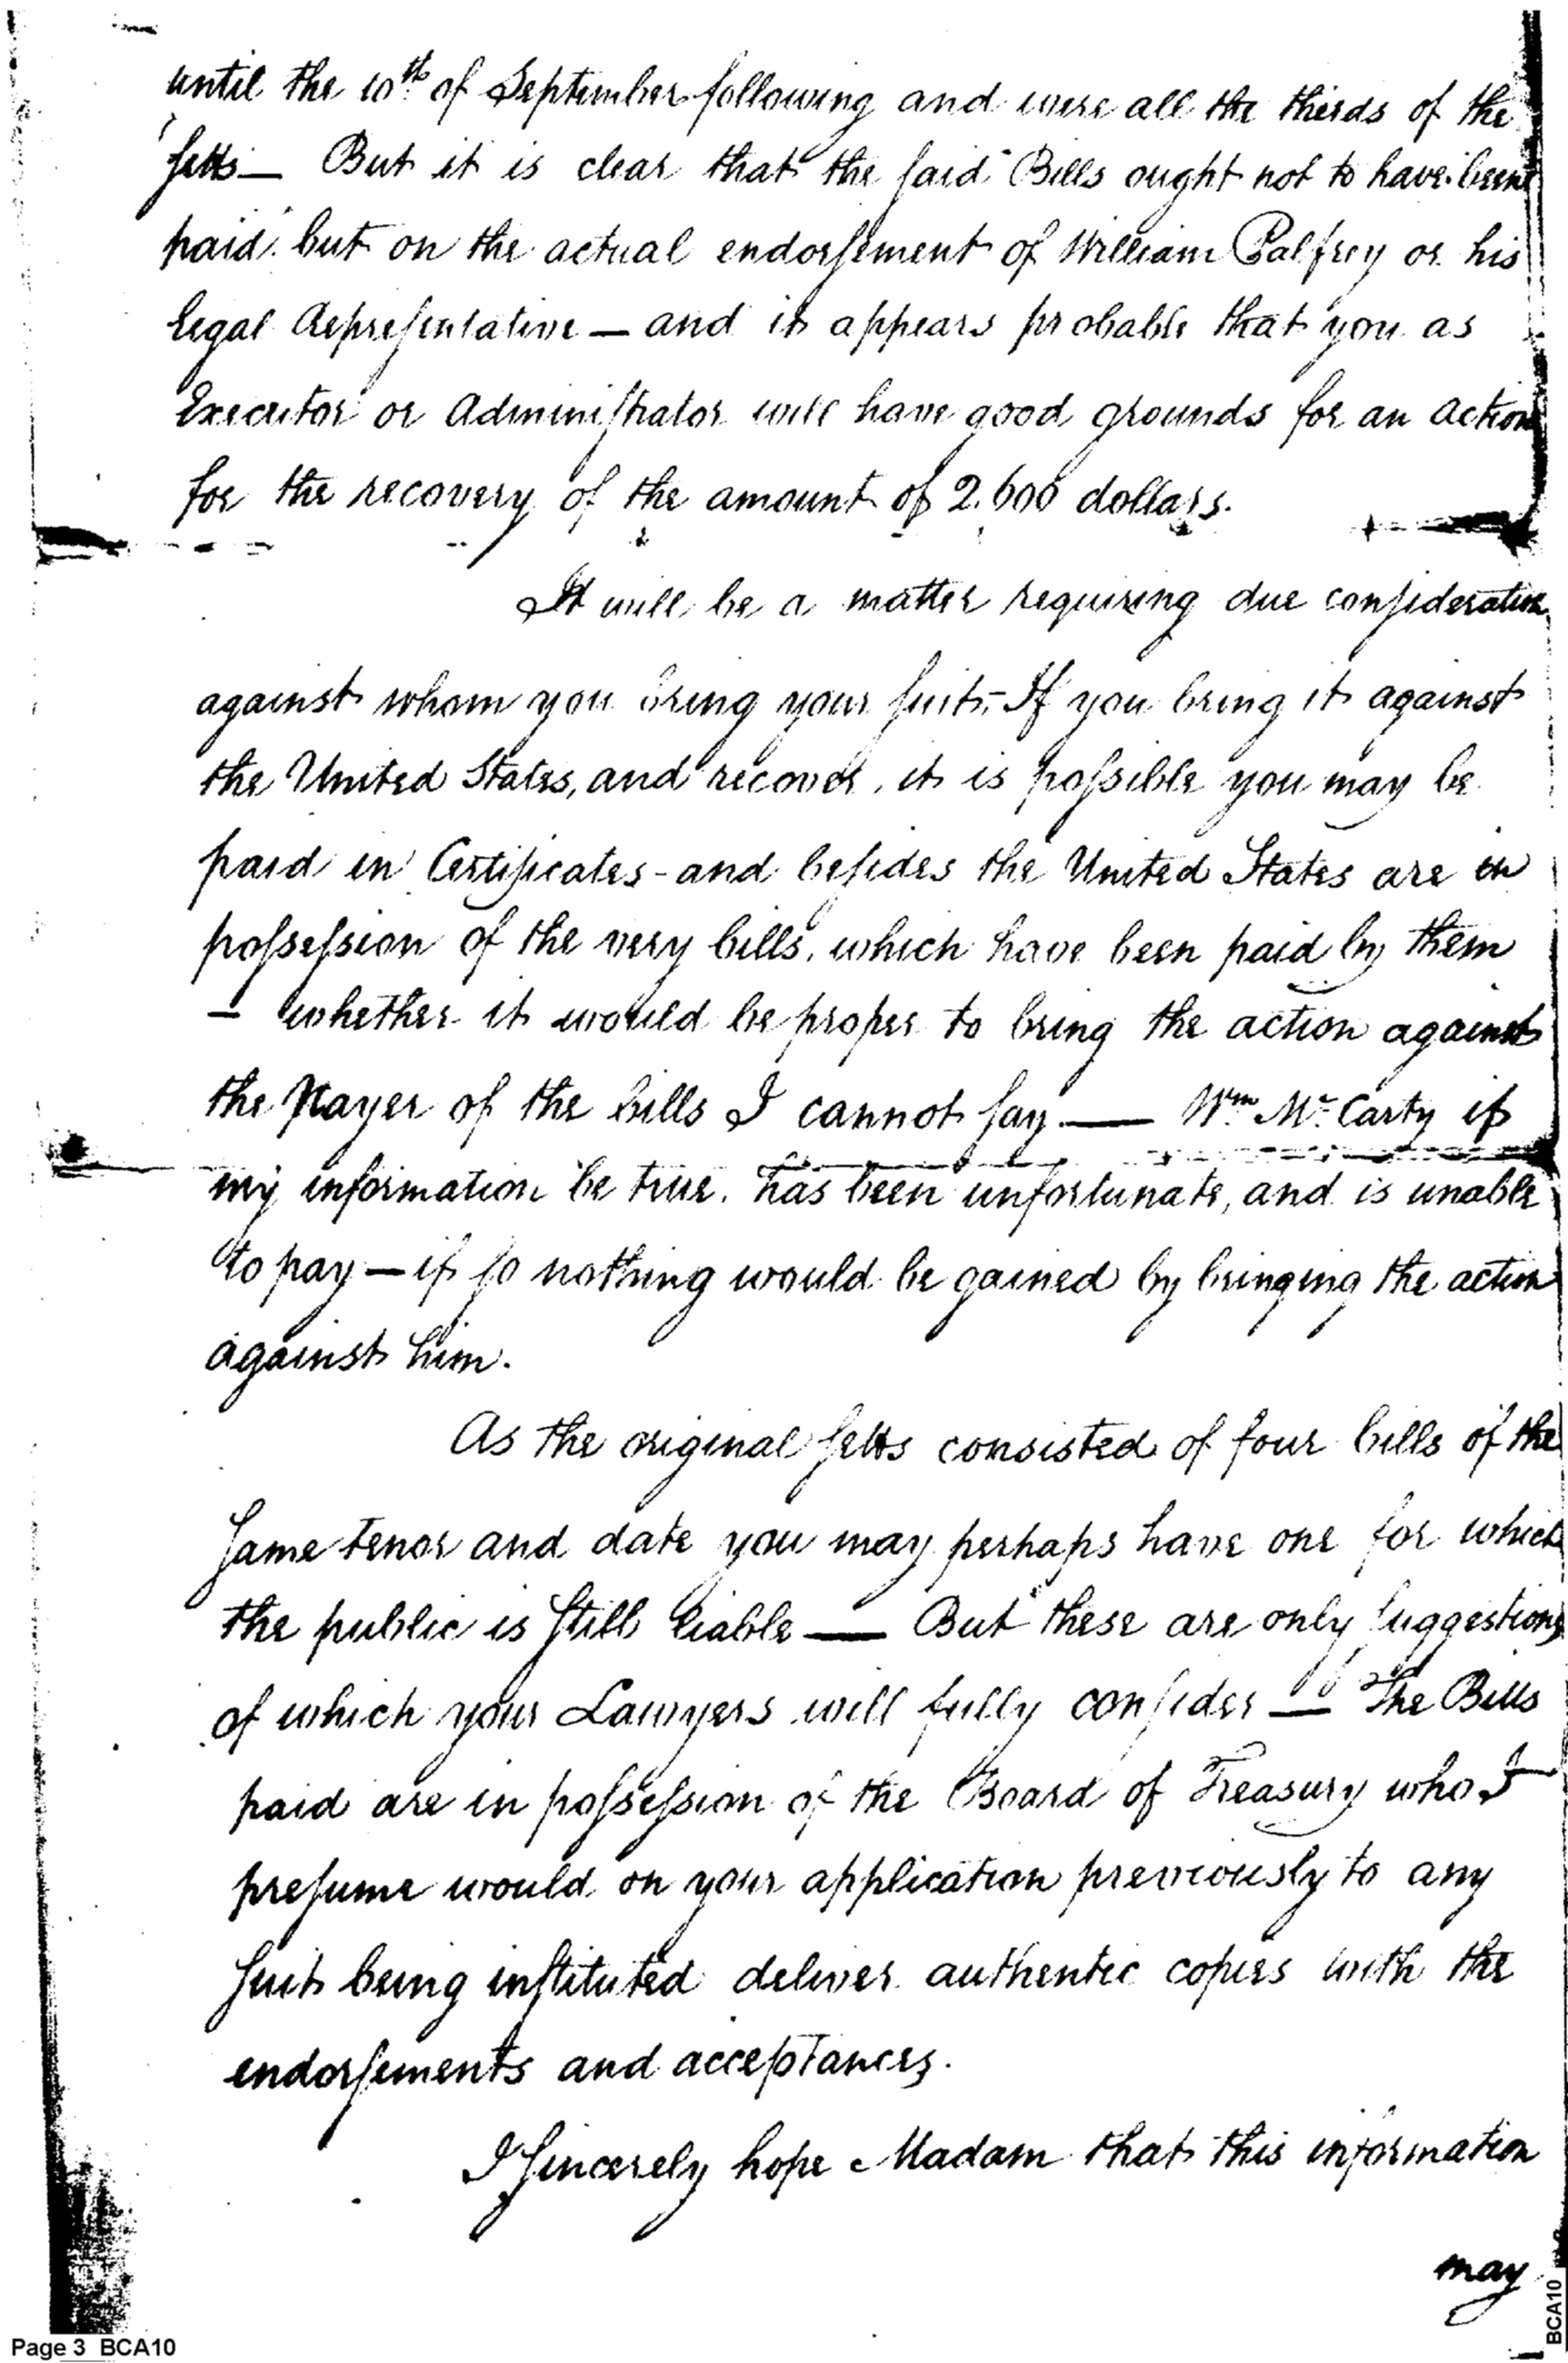 until the 10th of September following and were all the thirds of the
setts — But it is clear that the said Bills ought not to have been
paid but on the actual endorsement of William Palfrey or his
legal Representative — and it appears probable that you as
Executor or Administrator will have good grounds for an action
for the recovery of the amount of 2.600 dollars.
It will be a matter requiring due consideration
against whom you bring your suit, — If you bring it against
the United States, and recover, it is possible you may be
paid in Certificates - and besides the United States are in
possession of the very bills, which have been paid by them
— whether it would be proper to bring the action against
the Payer of the bills I cannot say. — Wm Mc Carty if
my information be true, has been unfortunate, and is unable
to pay — if so nothing would be gained by bringing the action
against him.
As the original setts consisted of four bills of the
same tenor and date you may perhaps have one for which
the public is still liable — But these are only suggestions
of which your Lawyers will fully consider — The Bills
paid are in possession of the Board of Treasury who I
presume would on your application previously to any
suit being instituted deliver authentic copies with the
endorsements and acceptances.
I sincerely hope Madam that this information
may
Page 3 BCA10
BCA10